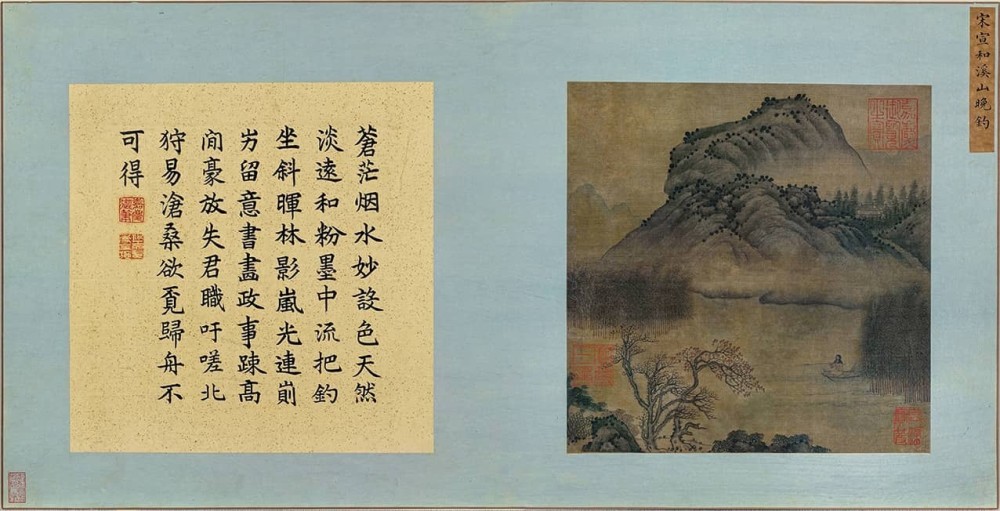 宋宣和溪山晚釣
蒼茫烟水妙設色天然
淡遠和粉墨中流把釣
坐斜暉林影嵐光連崱
屴留意書畫政事疎高
閒豪放失君職吁嗟北
狩易滄桑欲覔歸舟不
可得